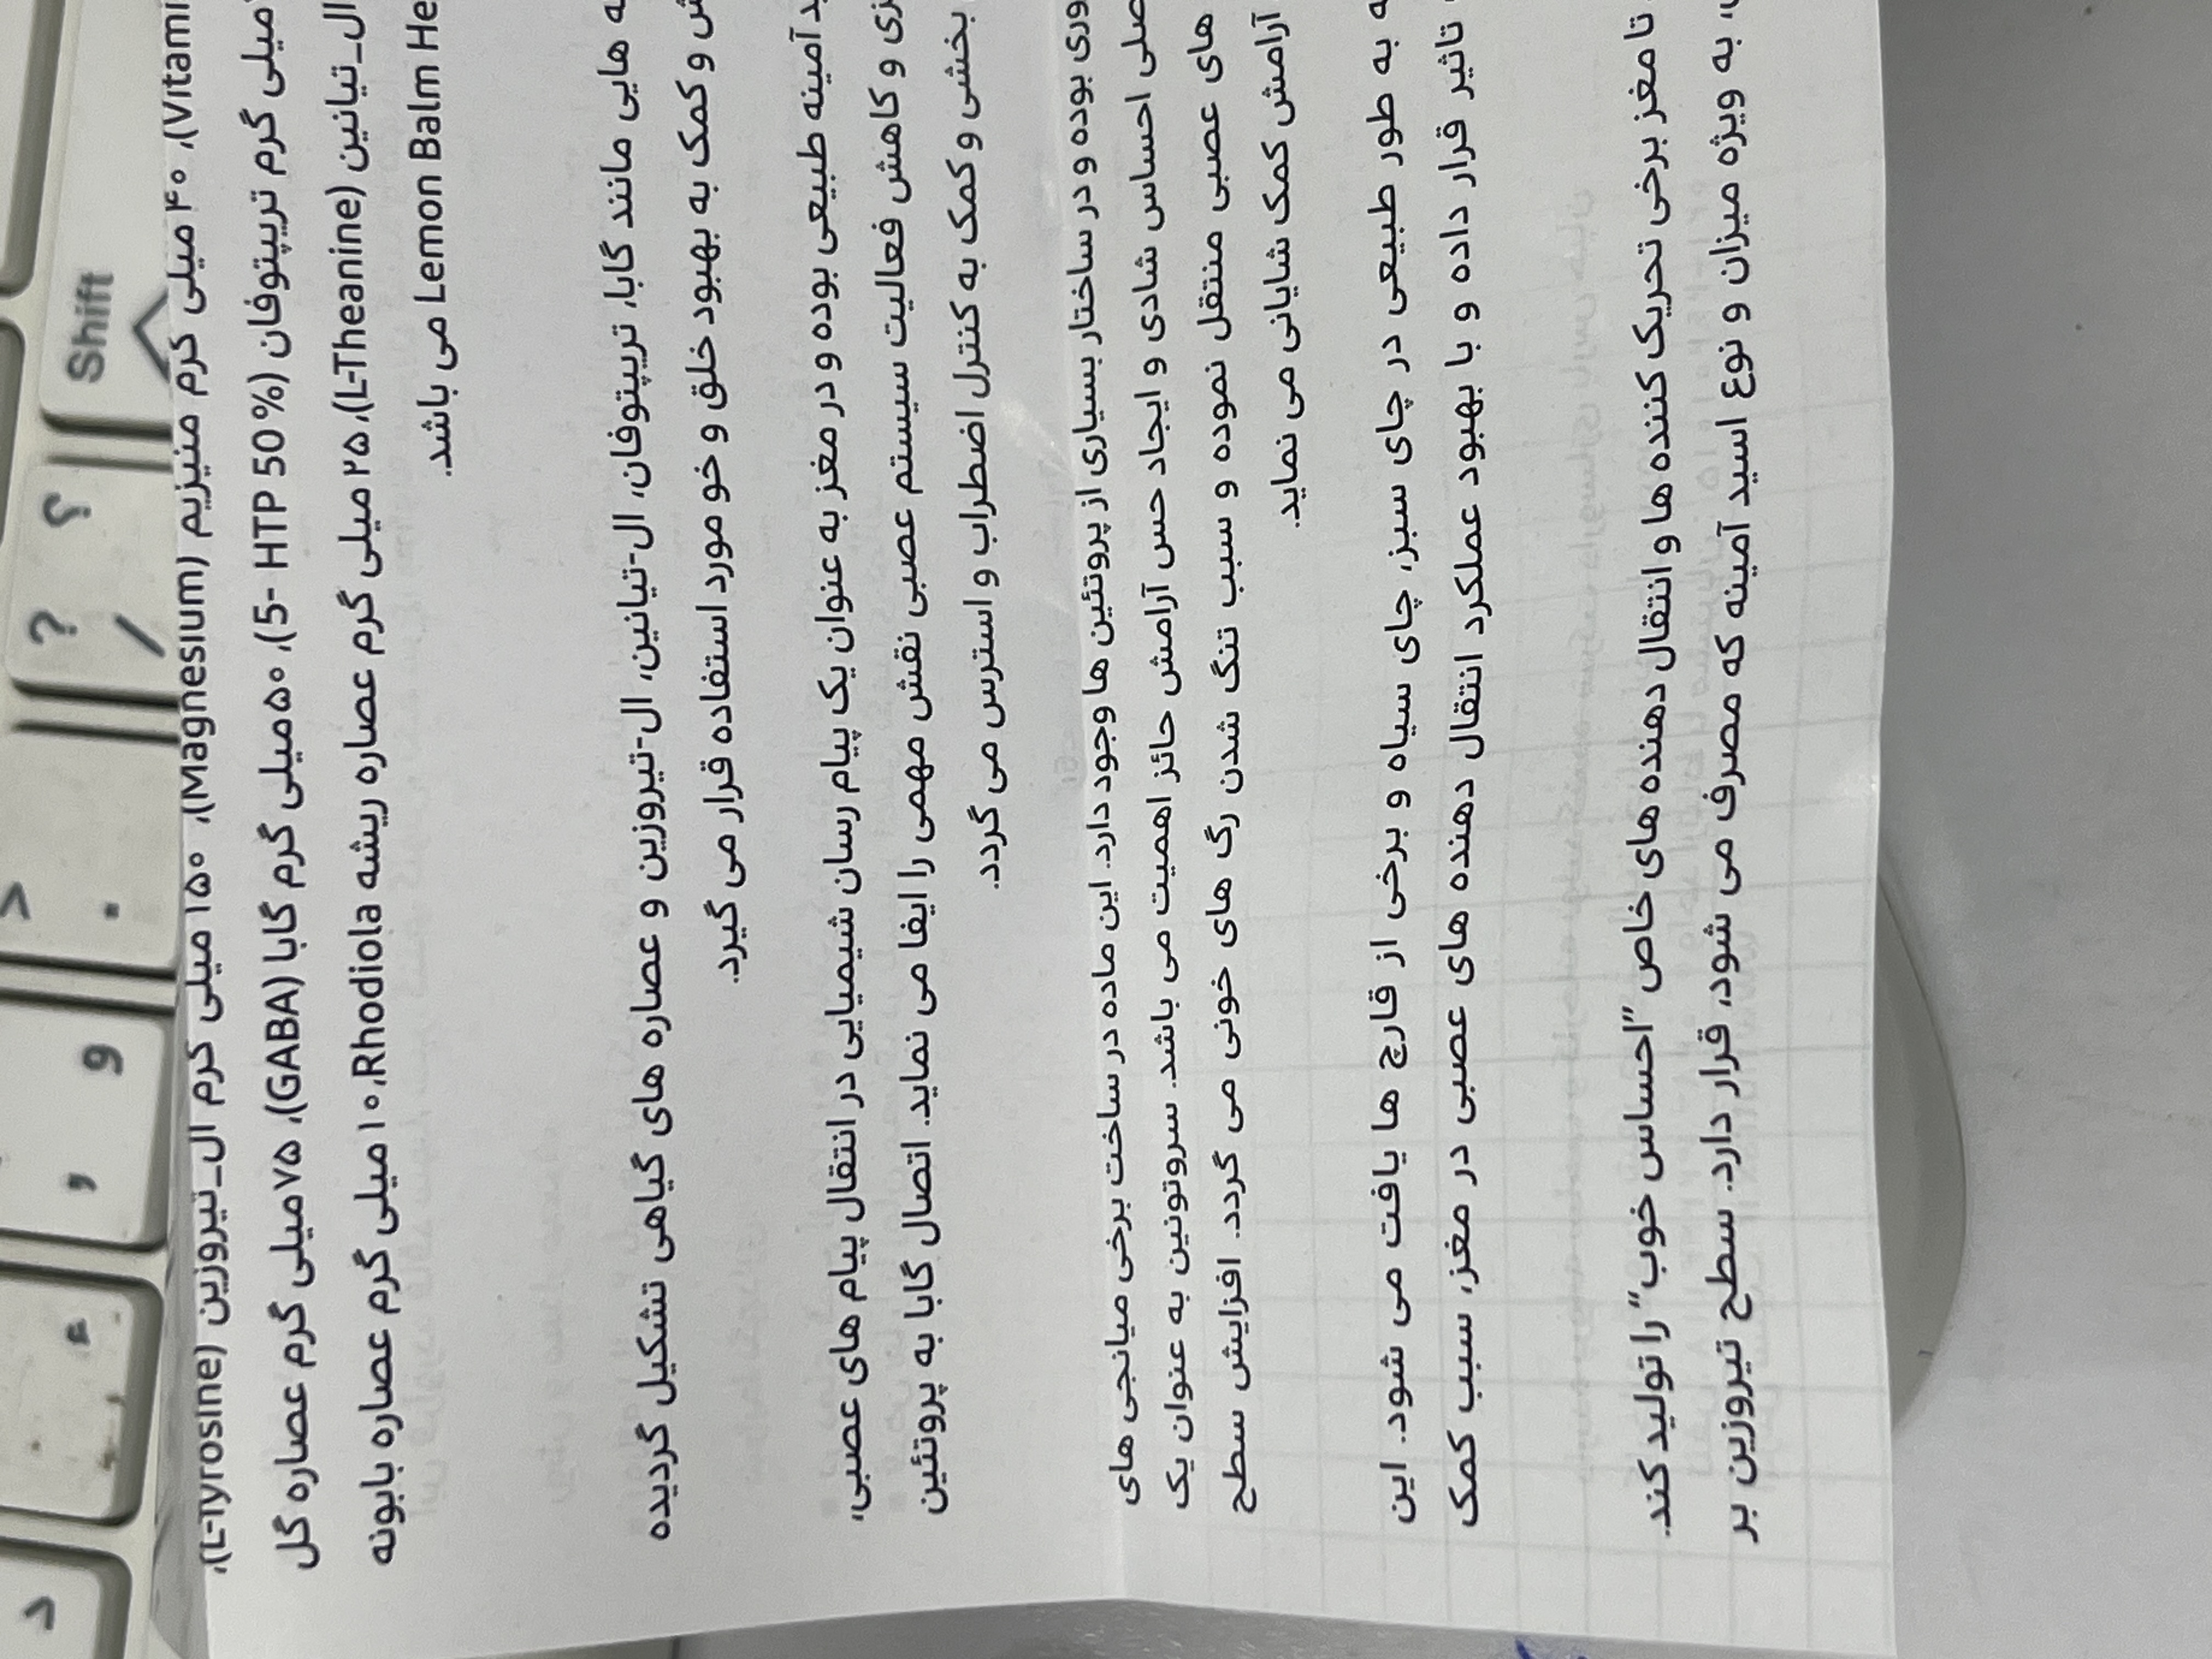 ۴۰ میلی گرم منیزیم (Magnesium)، ۱۵۰ میلی گرم ال_تیروزین (L-Tyrosine)،
میلی گرم تریپتوفان (5- HTP 50%)، ۵۰ میلی گرم گابا (GABA)، ۷۵ میلی گرم عصاره گل
ال_تیانین (L-Theanine)، ۲۵ میلی گرم عصاره ریشه Rhodiola، ۱۰ میلی گرم عصاره بابونه
Lemon Balm می باشد.
هایی مانند گابا، تریپتوفان، ال-تیانین، ال-تیروزین و عصاره های گیاهی تشکیل گردیده
و کمک به بهبود خلق و خو مورد استفاده قرار می گیرد.
آمینه طبیعی بوده و در مغز به عنوان یک پیام رسان شیمیایی در انتقال پیام های عصبی،
و کاهش فعالیت سیستم عصبی نقش مهمی را ایفا می نماید. اتصال گابا به پروتئین
بخشی و کمک به کنترل اضطراب و استرس می گردد.
بوده و در ساختار بسیاری از پروتئین ها وجود دارد. این ماده در ساخت برخی میانجی های
احساس شادی و ایجاد حس آرامش حائز اهمیت می باشد. سروتونین به عنوان یک
های عصبی منتقل نموده و سبب تنگ شدن رگ های خونی می گردد. افزایش سطح
آرامش کمک شایانی می نماید.
به طور طبیعی در چای سبز، چای سیاه و برخی از قارچ ها یافت می شود. این
تاثیر قرار داده و با بهبود عملکرد انتقال دهنده های عصبی در مغز، سبب کمک
تا مغز برخی تحریک کننده ها و انتقال دهنده های خاص "احساس خوب" را تولید کند.
به ویژه میزان و نوع اسید آمینه که مصرف می شود، قرار دارد. سطح تیروزین بر
Shift
? ؟
/
>
.
و
,